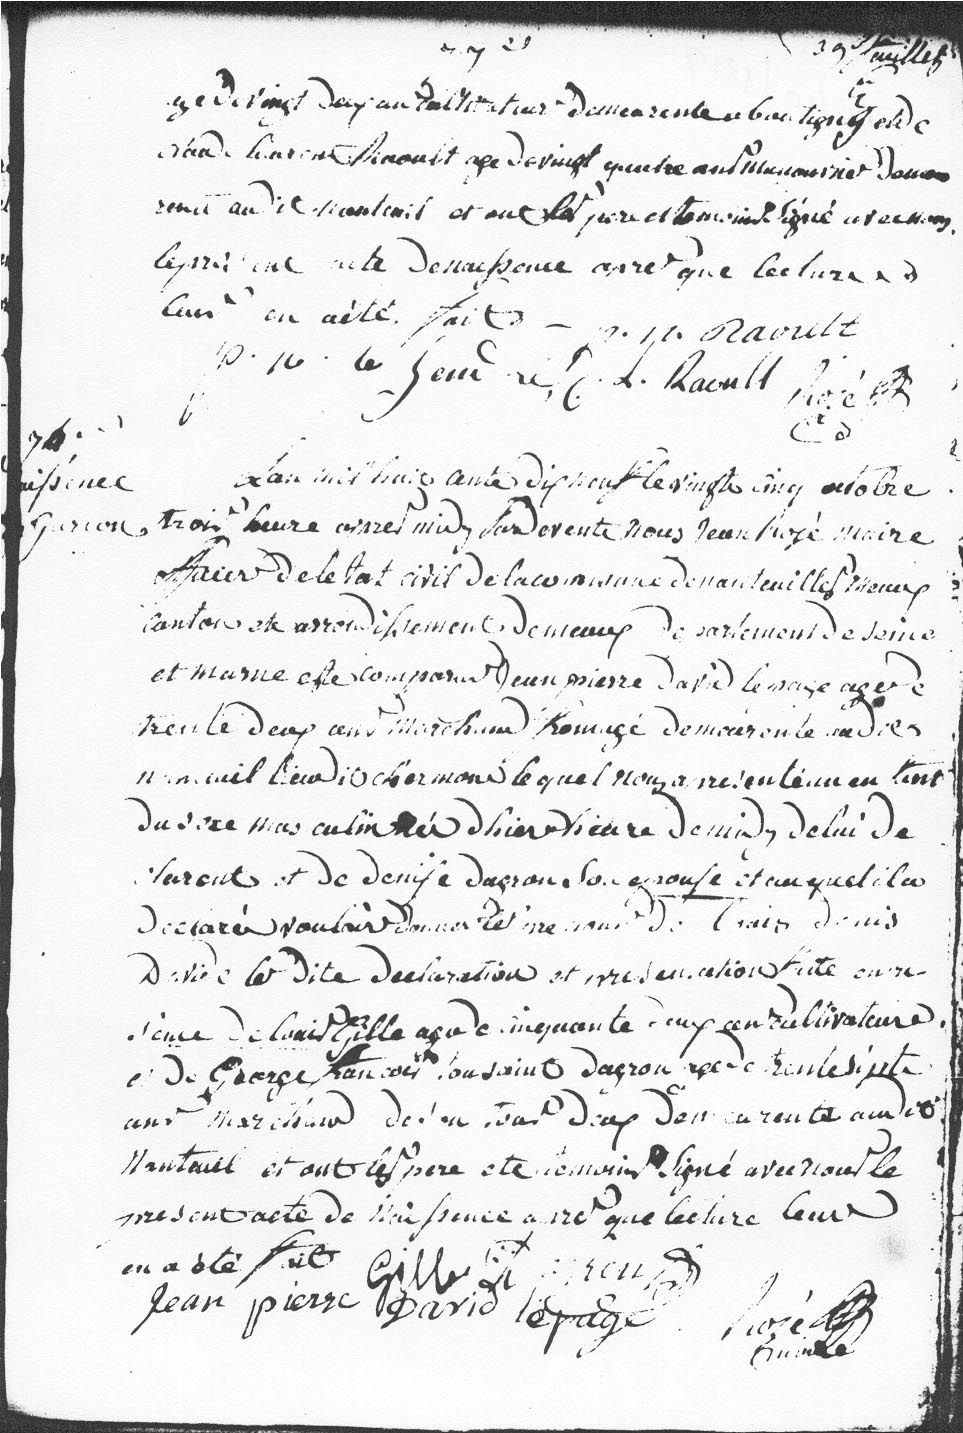 39 feuillet
age de vingt deux an cultivateur demeurente a boutigny et de
laurent Raoult age de vingt quatre ans manouvrier demeu
rent audit nanteuil et ont les pere et temoins signé avec nous
le present acte denaissance apres que lecture
leur en a été fait p. p. Raoult
p. p. le L. Raoult Rozé
naissence
Garcon
Lan mil huit cente dix neuf le vingt cinq octobre
trois heure apres midy pardevente nous Jean Rozé maire
officier de letat civil de la commune denanteuille meaux
canton et arrondissement de meaux departement de seine
et marne est comparu Jean pierre david lepage age de
trente deux ans marchand fromagé demeurente audit
nanteuil lieudit chermont le quel nous a presenté un enfent
du sexe masculin né d'hier heure de midy de lui de
clarent et de denise dagron son epouse et auquel il a
declaré vouloir donner les prenoms de Louis denis
David les dite declaration et presentation faite en pre
sence de louis Gille age de cinquante deux an cultivateure
et de George francois tousaint dagron age de trente sept
ans marchand de vin tous deux demeurente audit
Nanteuil et ont les pere ete temoins signé avec nous le
present acte de naissence apres que lecture leur
en a été fait Gille
Jean pierre David lepage Rozé
maire